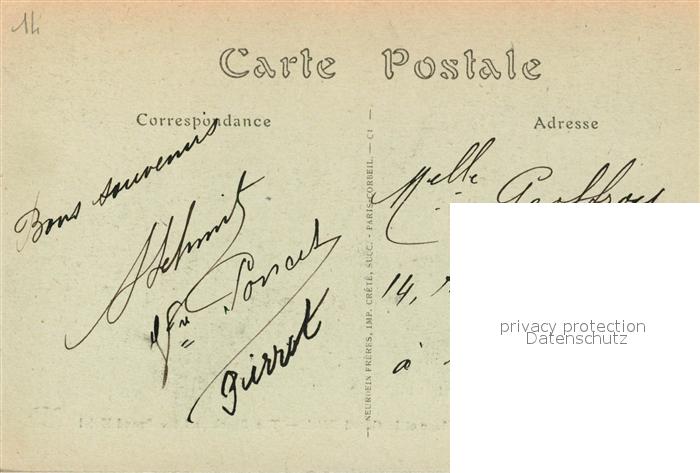 14
Carte Postale
Correspondance
Adresse
Bons souvenirs
Schmit
Poncet
Pierrot
NEURDEIN FRÈRES, IMP. CRÉTÉ, SUCC. - PARIS-CORBEIL. — CI
Melle Geoffroy
14,
à
privacy protection
Datenschutz